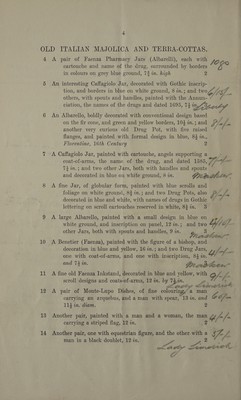 4
OLD ITALIAN MAJOLICA AND TERRA-COTTAS.
4 A pair of Faenza Pharmacy Jars (Albarelli), each with
cartouche and name of the drug, surrounded by borders
in colours on grey blue ground, 7½ in. high 2
5 An interesting Caffagiolo Jar, decorated with Gothic inscrip-
tion, and borders in blue on white ground, 8 in.; and two
others, with spouts and handles, painted with the Annun-
ciation, the names of the drugs and dated 1693, 7½ in. 3
6 An Albarello, boldly decorated with conventional design based
on the fir cone, and green and yellow borders, 10½ in.; and
another very curious old Drug Pot, with five raised
flanges, and painted with formal design in blue, 8½ in.,
Florentine, 16th Century 2
7 A Caffagiolo Jar, painted with cartouche, angels supporting a
coat-of-arms, the name of the drug, and dated 1593,
7½ in.; and two other Jars, both with handles and spouts
and decorated in blue on white ground, 8 in. 3
8 A fine Jar, of globular form, painted with blue scrolls and
foliage on white ground, 8½ in.; and two Drug Pots, also
decorated in blue and white, with names of drugs in Gothic
lettering on small cartouches reserved in white, 6½ in. 3
9 A large Albarello, painted with a small design in blue on
white ground, and inscription on panel, 12 in.; and two
other Jars, both with spouts and handles, 9 in. 3
10 A Benetier (Faenza), painted with the figure of a bishop, and
decoration in blue and yellow, 16 in.; and two Drug Jars,
one with coat-of-arms, and one with inscription, 8½ in.
and 7½ in. 3
11 A fine old Faenza Inkstand, decorated in blue and yellow, with
scroll designs and coat-of-arms, 12 in. by 7½ in.
Lady Limerick
12 A pair of Monte-Lupo Dishes, of fine colouring, a man
carrying an arquebus, and a man with spear, 13 in. and
11½ in. diam. 2
13 Another pair, painted with a man and a woman, the man
carrying a striped flag, 12 in. 2
14 Another pair, one with equestrian figure, and the other with a
man in a black doublet, 12 in. 2
Lady Limerick